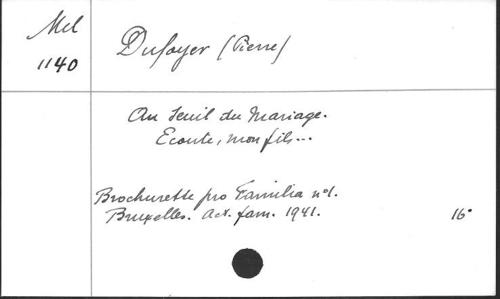 Mel
1140
Dufoyer (Pierre)
Au Seuil du Mariage.
Ecoute, mon fils...
Brochurette pro Familia n°1.
Bruxelles. Act. fam. 1941.
16°